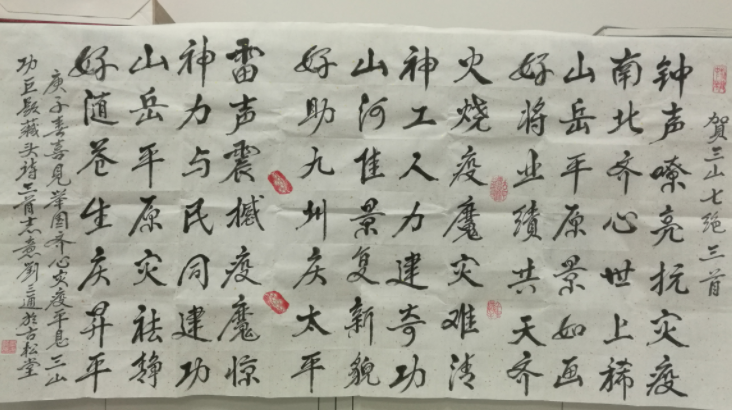 贺三山七绝三首
钟声嘹亮抗灾疫
南北齐心世上稀
山岳平原景如画
好将业绩共天齐
火烧疫魔灾难清
神工人力建奇功
山河佳景复新貌
好助九州庆太平
雷声震撼疫魔惊
神力与民同建功
山岳平原灾祛静
好随苍生庆昇平
庚子春喜见举国齐心灾疫平息三山
功臣敬藏头诗三首志意刘三通於古松堂